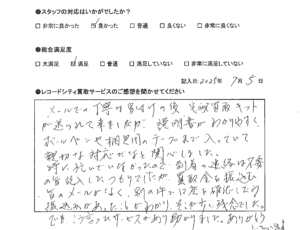 ●スタッフの対応はいかがでしたか?
□非常に良かった ☑良かった □普通 □良くない □非常に良くない
●総合満足度
□大満足 ☑満足 □普通 □満足していない □非常に満足していない
記入日:2025年 7月 5日
●レコードシティ買取サービスのご感想を聞かせてください
メールでの丁寧な
が送られて来ましたが、説明書がわかりやすく、
ボールペンや梱包用のテープまで入っていて
親切な対応だなと関心しました。
到着の連絡は不要
の旨 したつもりでしたが、買取金を振込む
旨のメールがなく、別の件で口座を確認したら
振込みがあったことがわかり、そこが少し残念でした。
でもこう言うサービスがあり助かりました。ありがとう